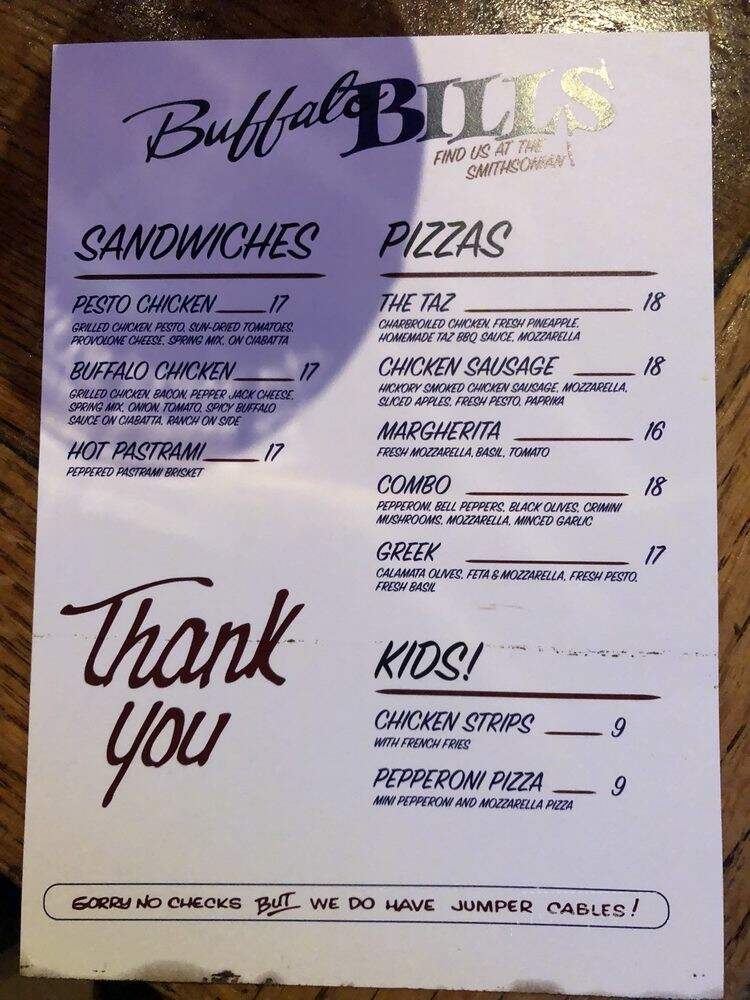 Buffalo BILLS
FIND US AT THE
SMITHSONIAN!
SANDWICHES
PESTO CHICKEN 17
GRILLED CHICKEN, PESTO, SUN-DRIED TOMATOES,
PROVOLONE CHEESE, SPRING MIX, ON CIABATTA
BUFFALO CHICKEN 17
GRILLED CHICKEN, BACON, PEPPER JACK CHEESE,
SPRING MIX, ONION, TOMATO, SPICY BUFFALO
SAUCE ON CIABATTA. RANCH ON SIDE
HOT PASTRAMI 17
PEPPERED PASTRAMI BRISKET
Thank
you
PIZZAS
THE TAZ 18
CHARBROILED CHICKEN, FRESH PINEAPPLE,
HOMEMADE TAZ BBQ SAUCE, MOZZARELLA
CHICKEN SAUSAGE 18
HICKORY SMOKED CHICKEN SAUSAGE, MOZZARELLA,
SLICED APPLES, FRESH PESTO, PAPRIKA
MARGHERITA 16
FRESH MOZZARELLA, BASIL, TOMATO
COMBO 18
PEPPERONI, BELL PEPPERS, BLACK OLIVES, CRIMINI
MUSHROOMS, MOZZARELLA, MINCED GARLIC
GREEK 17
CALAMATA OLIVES, FETA & MOZZARELLA, FRESH PESTO,
FRESH BASIL
KIDS!
CHICKEN STRIPS 9
WITH FRENCH FRIES
PEPPERONI PIZZA 9
MINI PEPPERONI AND MOZZARELLA PIZZA
SORRY NO CHECKS BUT WE DO HAVE JUMPER CABLES!